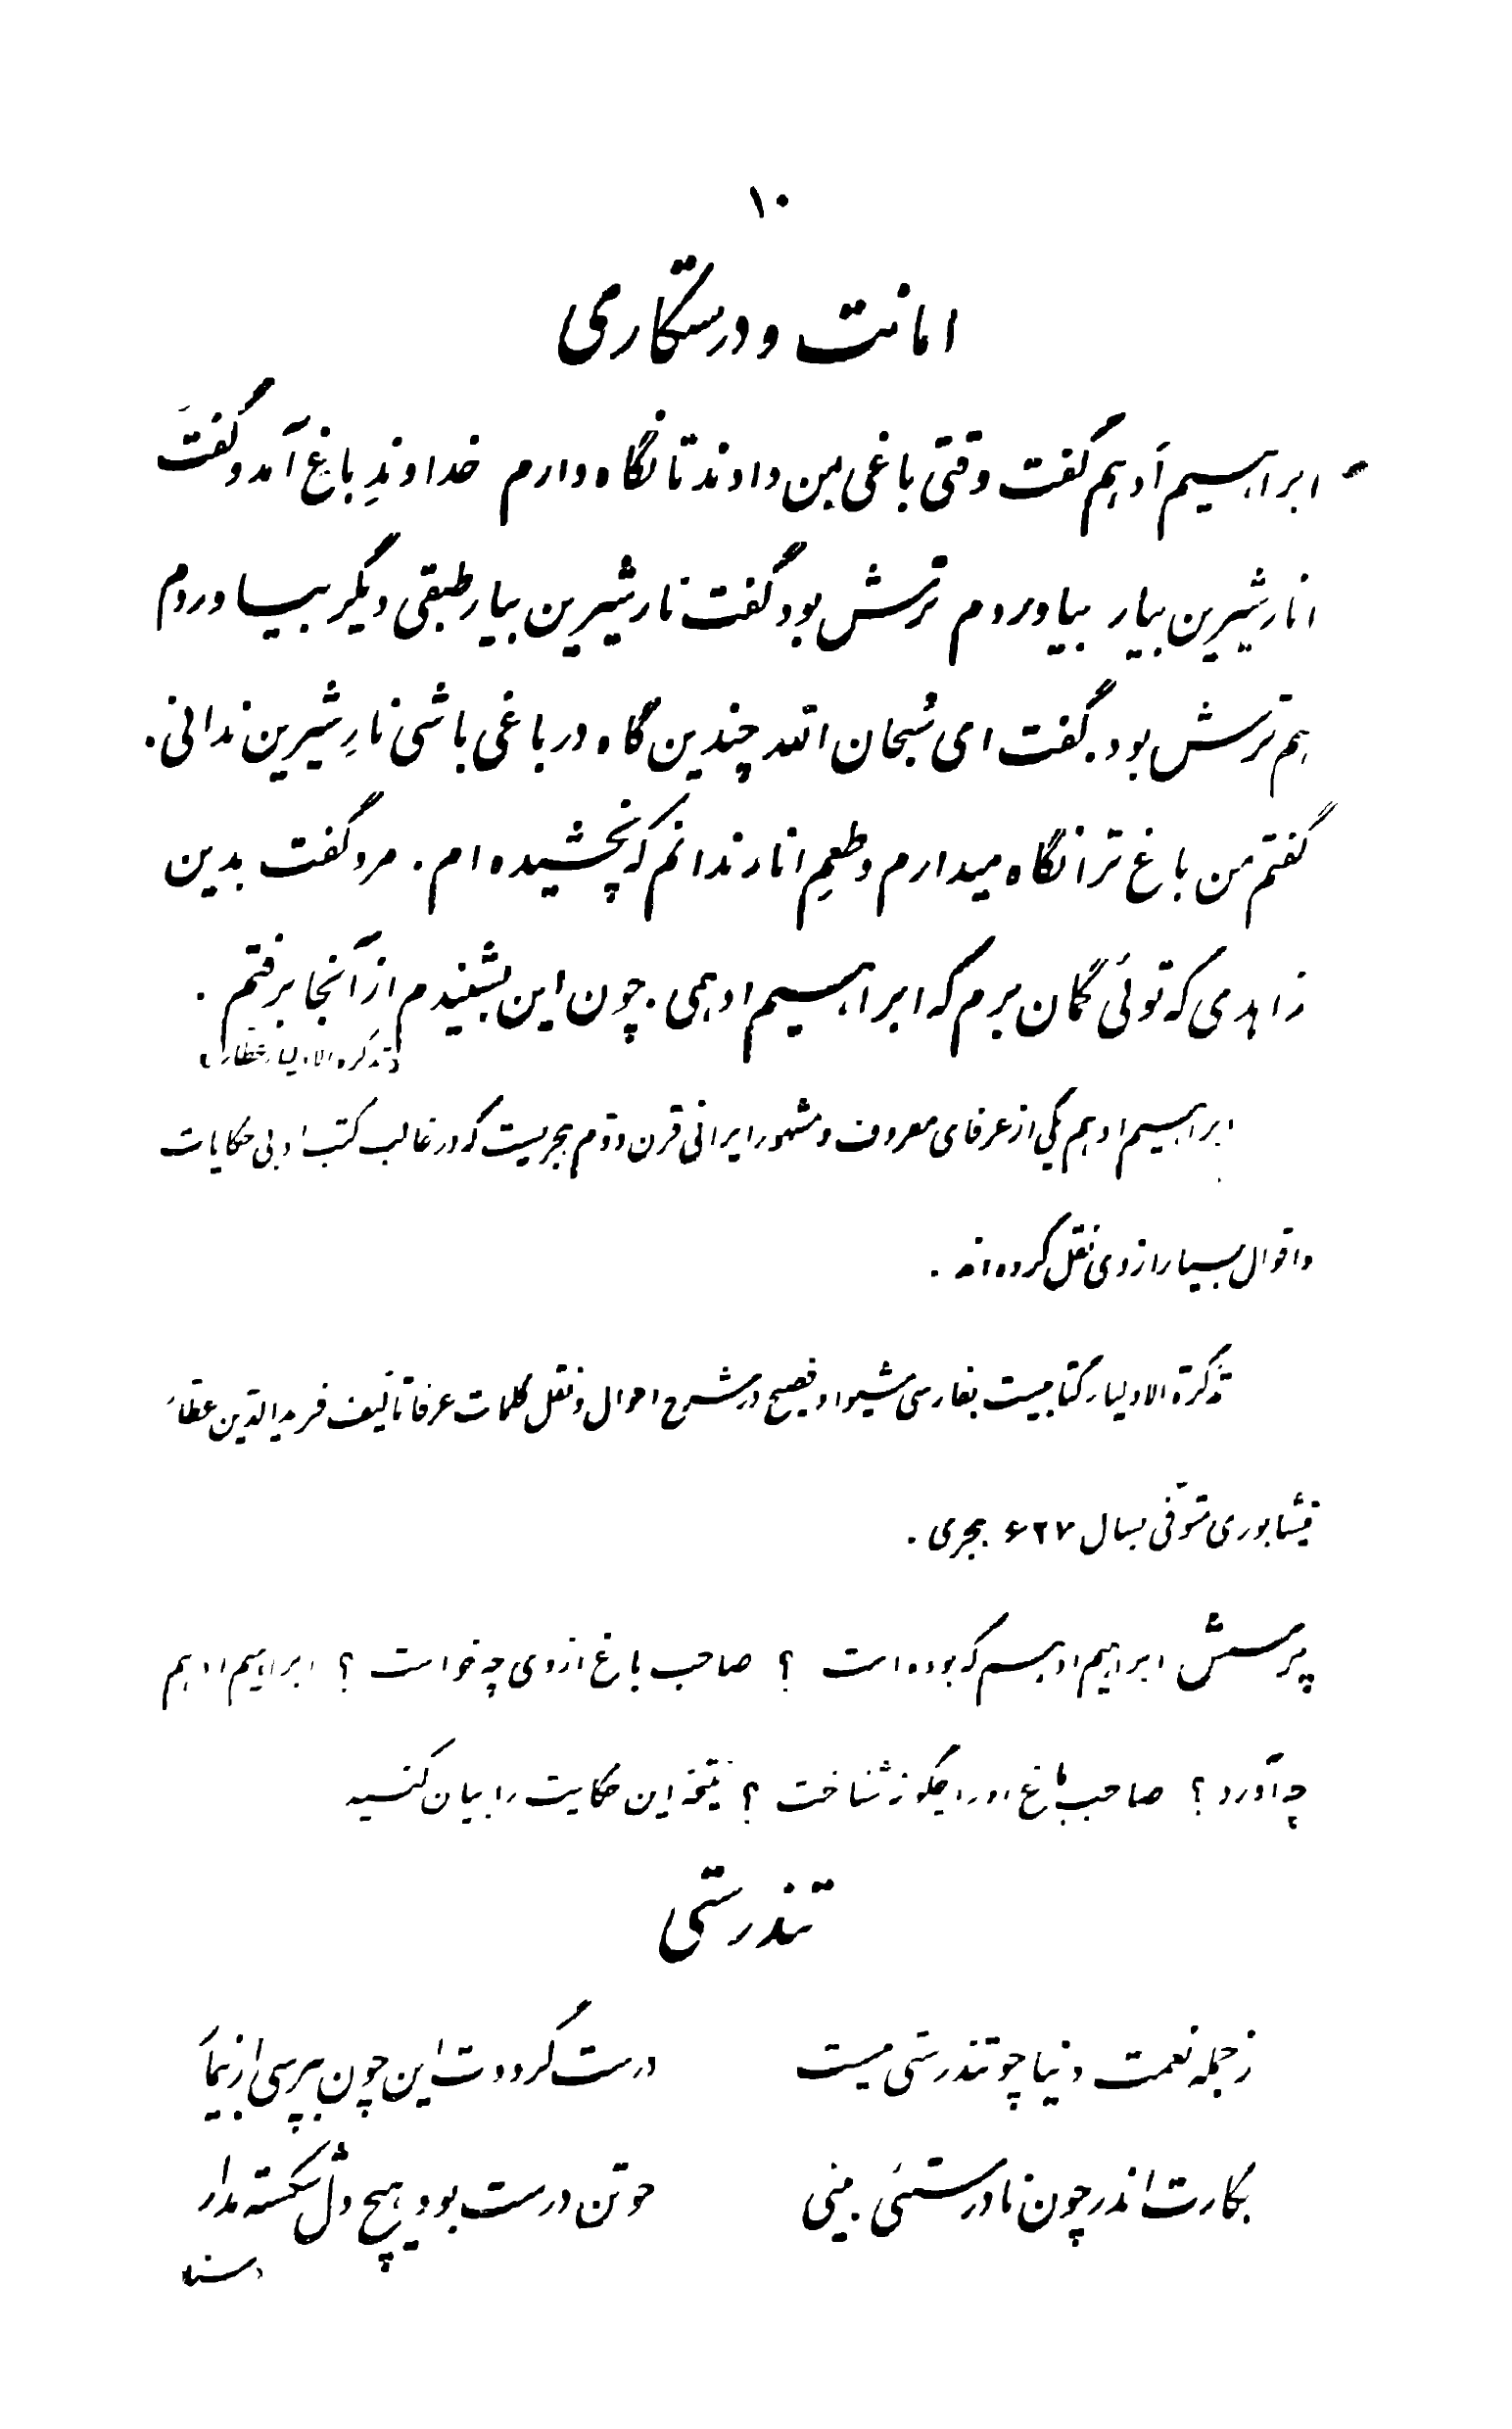 ۱۰
امانت و درستکاری
ابراهیم اَدهم گفت وقتی باغی بمن دادند تا نگاه دارم خداوندِ باغ آمد و گفت
انار شیرین بیار بیاوردم ترش بود گفت نار شیرین بیار طبقی دیگر بیاوردم
هم ترش بود. گفت ای سُبحان الله چندین گاه در باغی باشی نارِ شیرین ندانی.
گفتم من باغ ترا نگاه میدارم و طعمِ انار ندانم که نچشیده‌ام. مرد گفت بدین
زاهدی که توئی گمان برم که ابراهیم ادهمی. چون این بشنیدم از آنجا برفتم.
(تذکره الاولیاء عطار)
ابراهیم ادهم یکی از عرفای معروف و مشهور ایرانی قرن دوّم هجریست که در غالب کتب ادبی حکایات
و اقوال بسیار از وی نقل کرده‌اند.
تذکرة الاولیاء کتابیست بفارسی شیوا و فصیح در شرح احوال و نقل کلمات عرفا تألیف فریدالدّین عطّار
نیشابوری متوّفی بسال ۶۲۷ هجری.
پرسش ابراهیم ادهم که بوده است ؟ صاحب باغ از وی چه خواست ؟ ابراهیم ادهم
چه آورد ؟ صاحب باغ او را چگونه شناخت ؟ نتیجه این حکایت را بیان کنید
تندرستی
ز جمله نعمت دنیا چو تندرستی نیست درست گرددت این چون بپرسی از بیمار
بکارت اندر چون نادرستئی بینی چو تن درست بود هیچ دل شکسته مدار